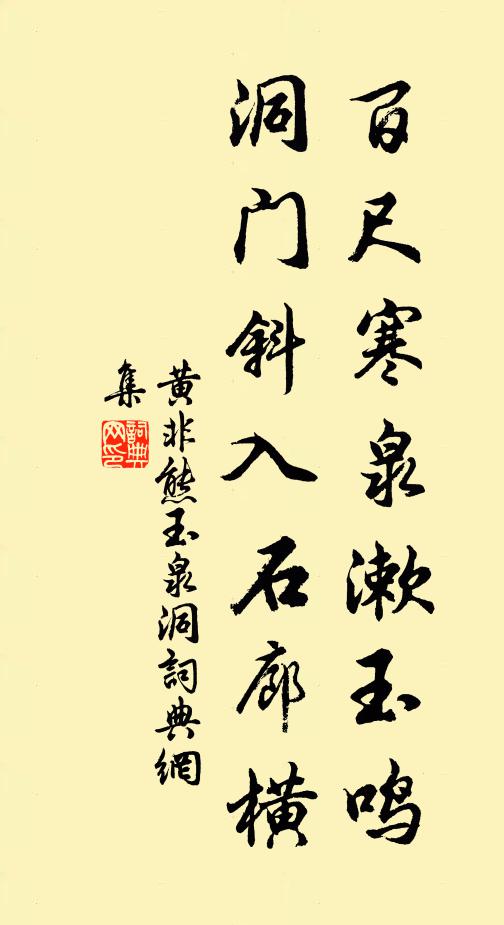 百尺寒泉漱玉鸣
洞门斜入石廊横
黄非熊玉泉洞詞典網
集
詞典
网印